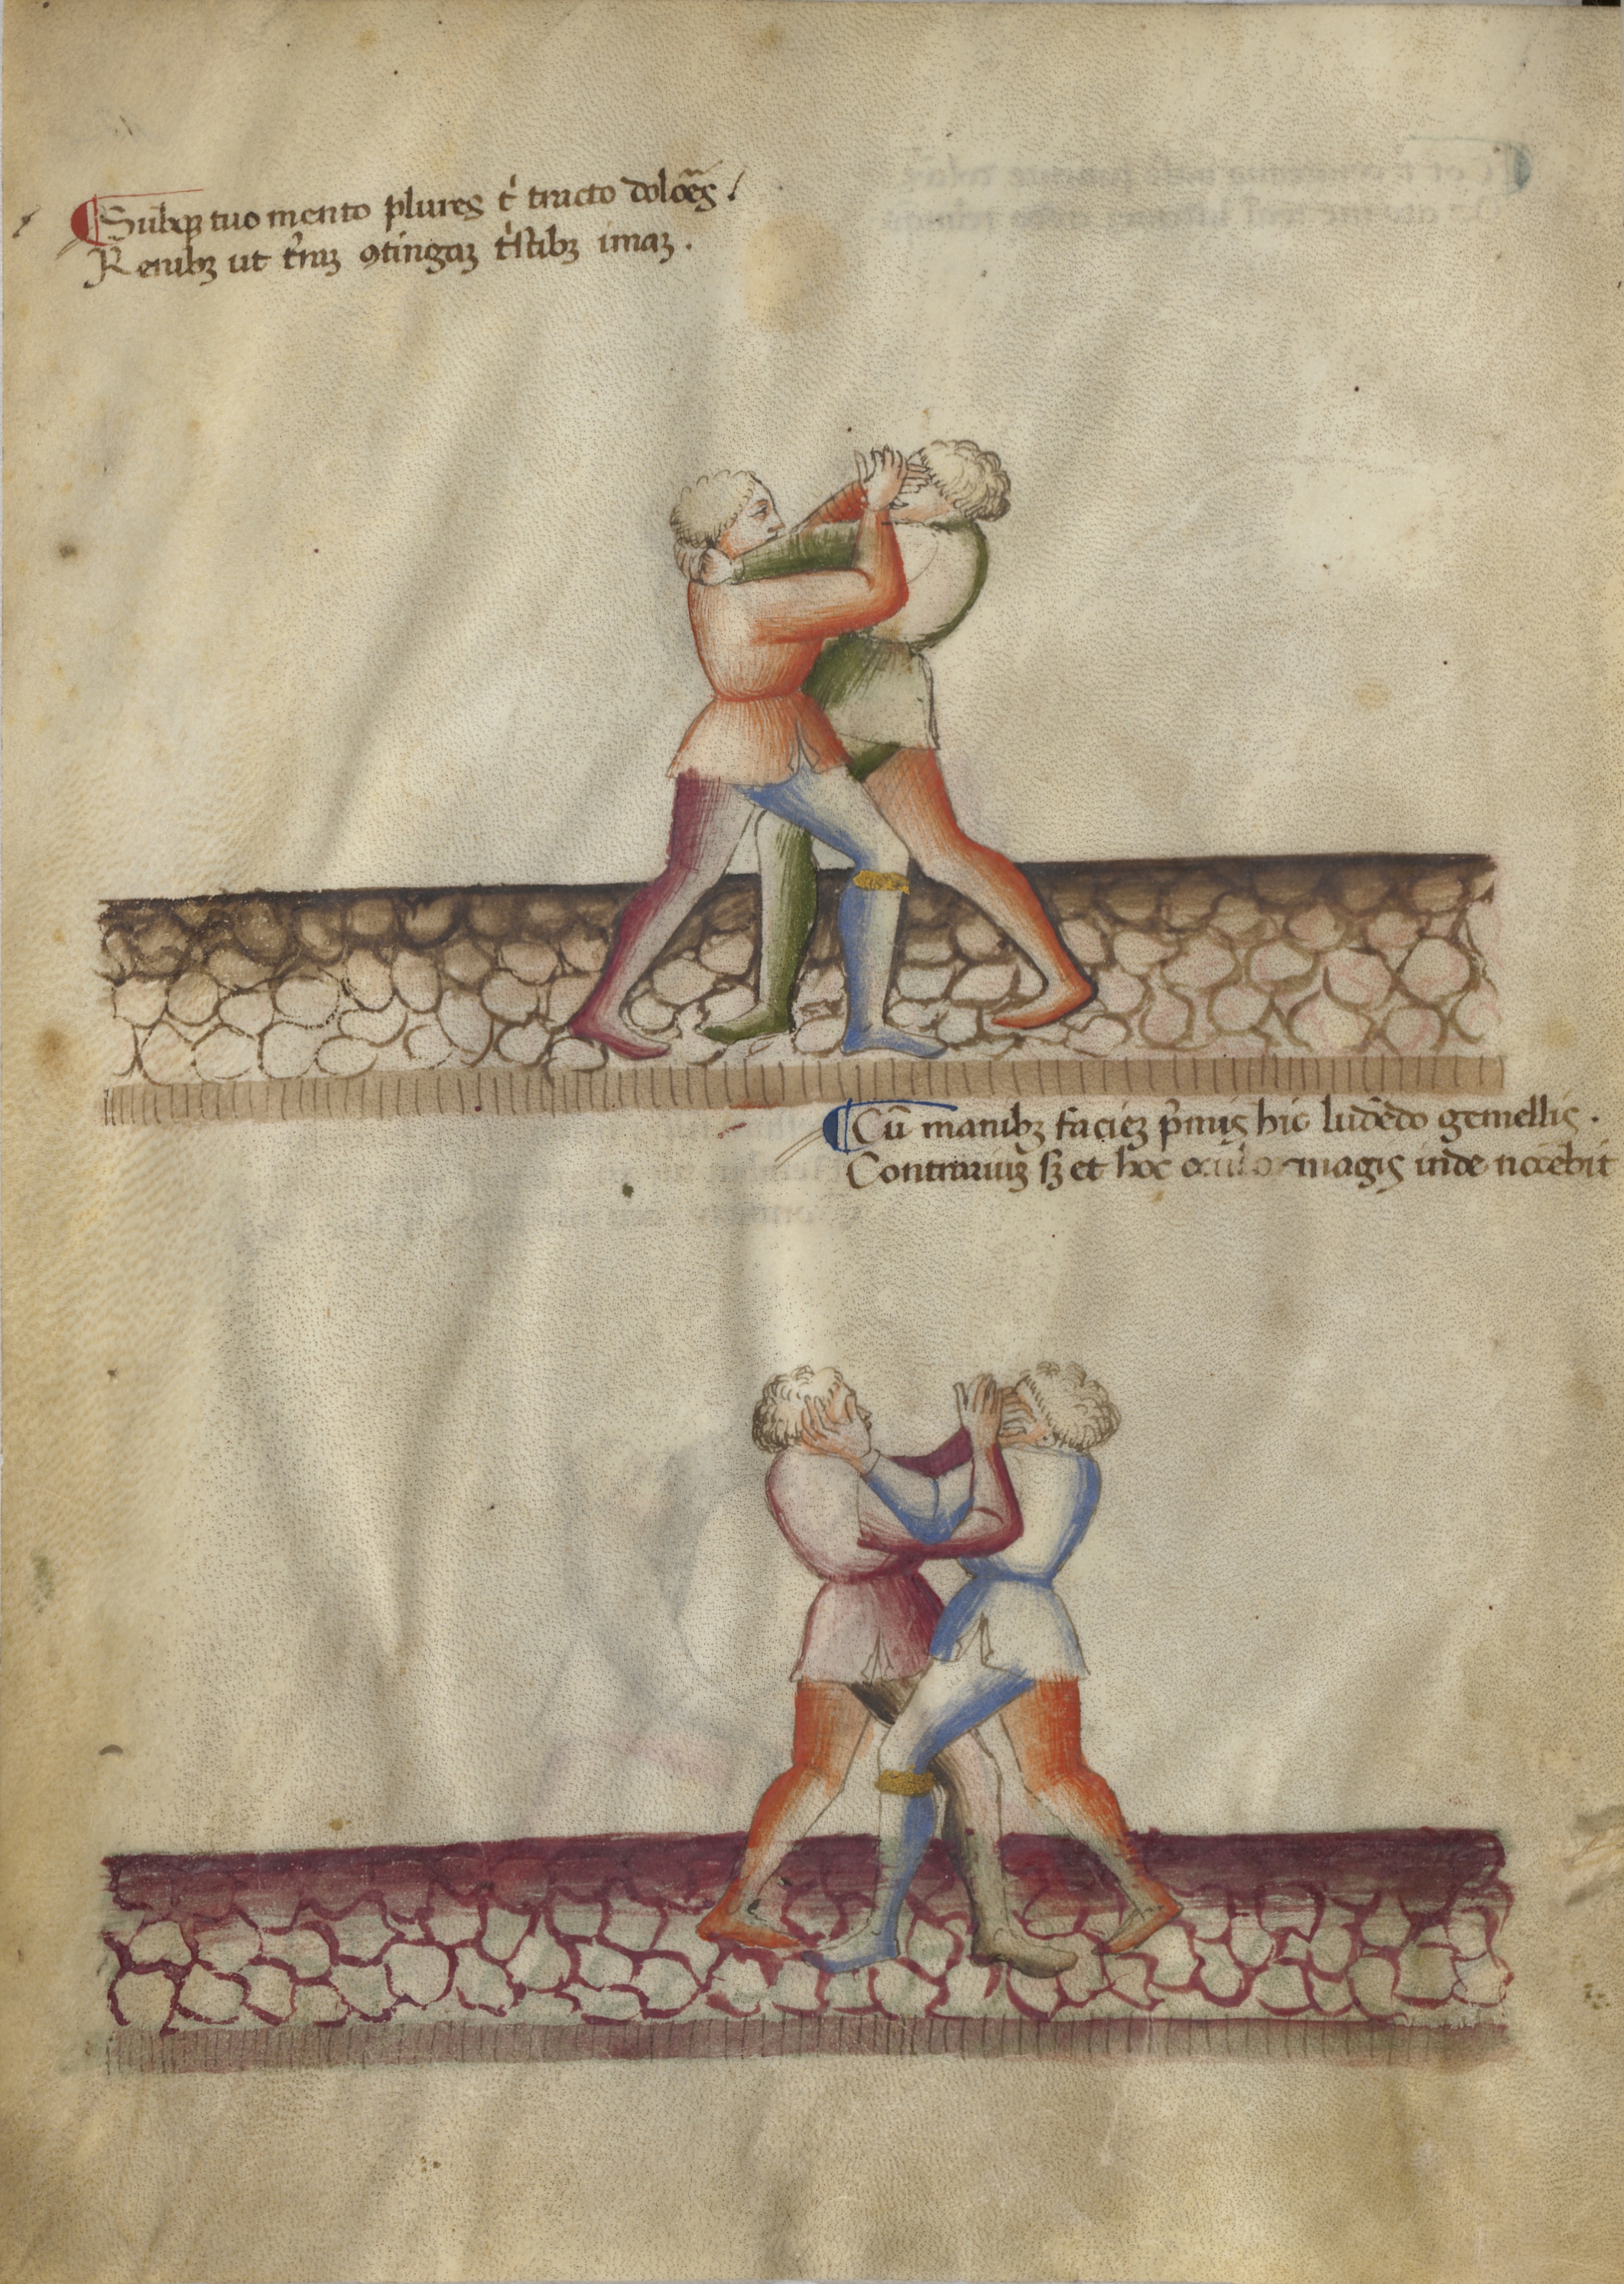 Subqꝫ tuo mento plures tͥ tracto dolo͞es /
Renibꝫ ut t͛raꝫ ꝯtingaꝫ tͥstibꝫ imaꝫ .
Cū manibꝫ facieꝫ p͛mis hic ludēdo gemellis .
Contrariuꝫ sꝫ et hoc magis inde nocebit